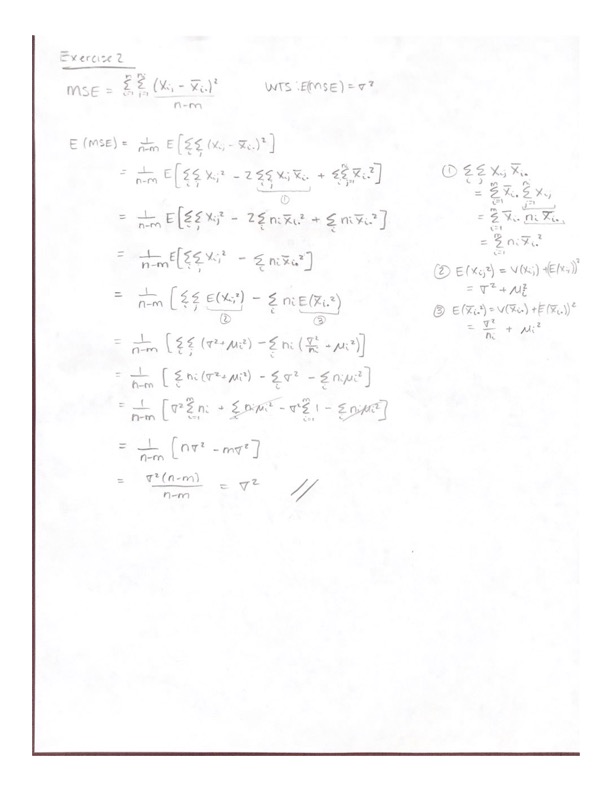 Exercise 2
MSE = Σ_{i=1}^{m} Σ_{j=1}^{n_i} (X_{ij} - X̄_{i.})² / (n-m)    WTS: E(MSE) = σ²
E(MSE) = 1/(n-m) E[Σ_i Σ_j (X_{ij} - X̄_{i.})²]
= 1/(n-m) E[Σ_i Σ_j X_{ij}² - 2 Σ_i Σ_j X_{ij} X̄_{i.} + Σ_i Σ_{j=1}^{n_i} X̄_{i.}²]
①
= 1/(n-m) E[Σ_i Σ_j X_{ij}² - 2 Σ_i n_i X̄_{i.}² + Σ_i n_i X̄_{i.}²]
= 1/(n-m) E[Σ_i Σ_j X_{ij}² - Σ_i n_i X̄_{i.}²]
= 1/(n-m) [Σ_i Σ_j E(X_{ij}²) - Σ_i n_i E(X̄_{i.}²)]
② ③
= 1/(n-m) [Σ_i Σ_j (σ² + μ_i²) - Σ_i n_i (σ²/n_i + μ_i²)]
= 1/(n-m) [Σ_i n_i (σ² + μ_i²) - Σ_i σ² - Σ_i n_i μ_i²]
= 1/(n-m) [σ² Σ_{i=1}^{m} n_i + Σ_i n_i μ_i² - σ² Σ_{i=1}^{m} 1 - Σ_i n_i μ_i²]
= 1/(n-m) [nσ² - mσ²]
= σ²(n-m) / (n-m) = σ² //
① Σ_i Σ_j X_{ij} X̄_{i.}
= Σ_{i=1}^{m} X̄_{i.} Σ_{j=1}^{n_i} X_{ij}
= Σ_{i=1}^{m} X̄_{i.} n_i X̄_{i.}
= Σ_{i=1}^{m} n_i X̄_{i.}²
② E(X_{ij}²) = V(X_{ij}) + (E(X_{ij}))²
= σ² + μ_i²
③ E(X̄_{i.}²) = V(X̄_{i.}) + (E(X̄_{i.}))²
= σ²/n_i + μ_i²